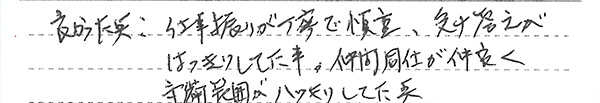 良かった点：仕事振りが丁寧で慎重、受け答えが
はっきりしてた事。仲間同士が仲良く
守備範囲がハッキリしてた点